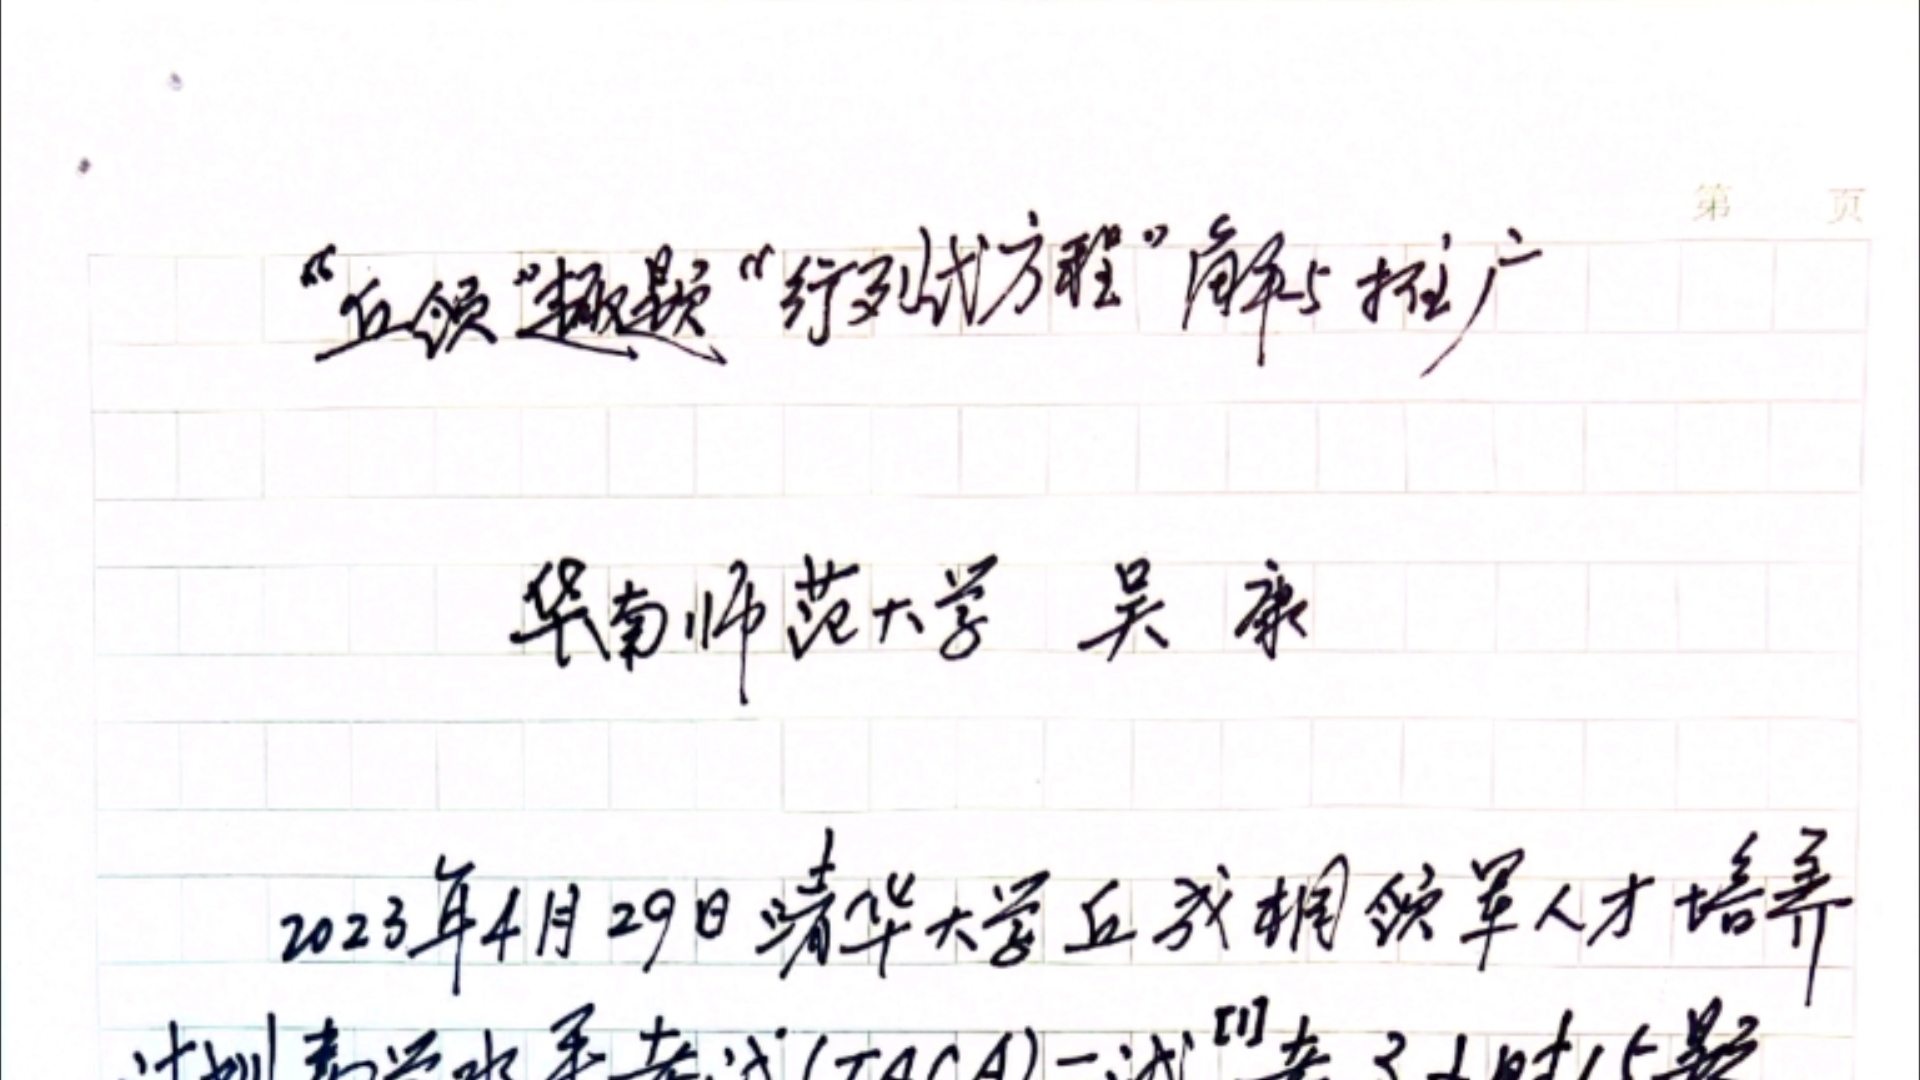 第 页
“丘领”趣题“行列式方程”解与推广
华南师范大学 吴康
2023年4月29日清华大学丘成桐领军人才培养
计划数学水平考试(TACA)一试[1]考3小时15题